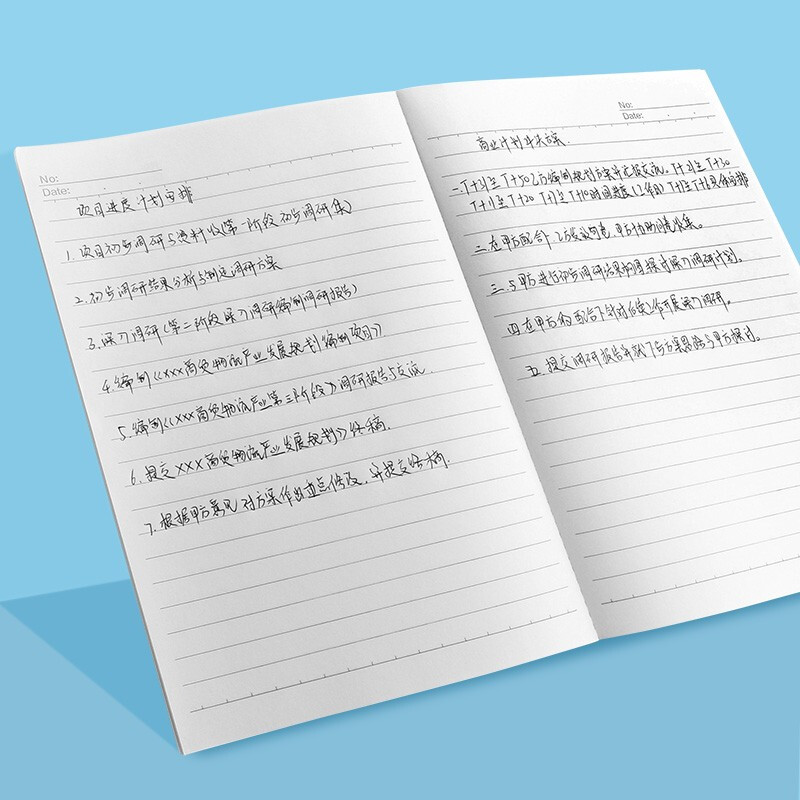 No:
Date:
项目进展计划安排
1. 项目初步调研与资料收(第一阶段 初步调研集)
2. 初步调研结果分析与制定调研方案
3. 深入调研(第二阶段 深入调研编制调研报告)
4. 编制《XXX商贸物流产业发展规划 编制项目》
5. 编制《XXX商贸物流产业第三阶段》调研报告与交流
6. 提交XXX商贸物流产业发展规划》终稿.
7. 根据甲方意见对方案作出 修改, 并提交终稿.
No:
Date:
商业计划 方案
一T+31至T+50乙方编制规划方案并 T+21至T+30
T+11至T+20 T+1至T+10时间进度(工作日) T+1至T+ 具体安排
二 在甲方配合 乙方 甲方协助 收集。
三. 与甲方进行初步调研结果 探讨深入调研计划.
四 在甲方的配合下针对 工作开展深入调研。
五. 提交调研报告并就下步方案思路与甲方探讨。